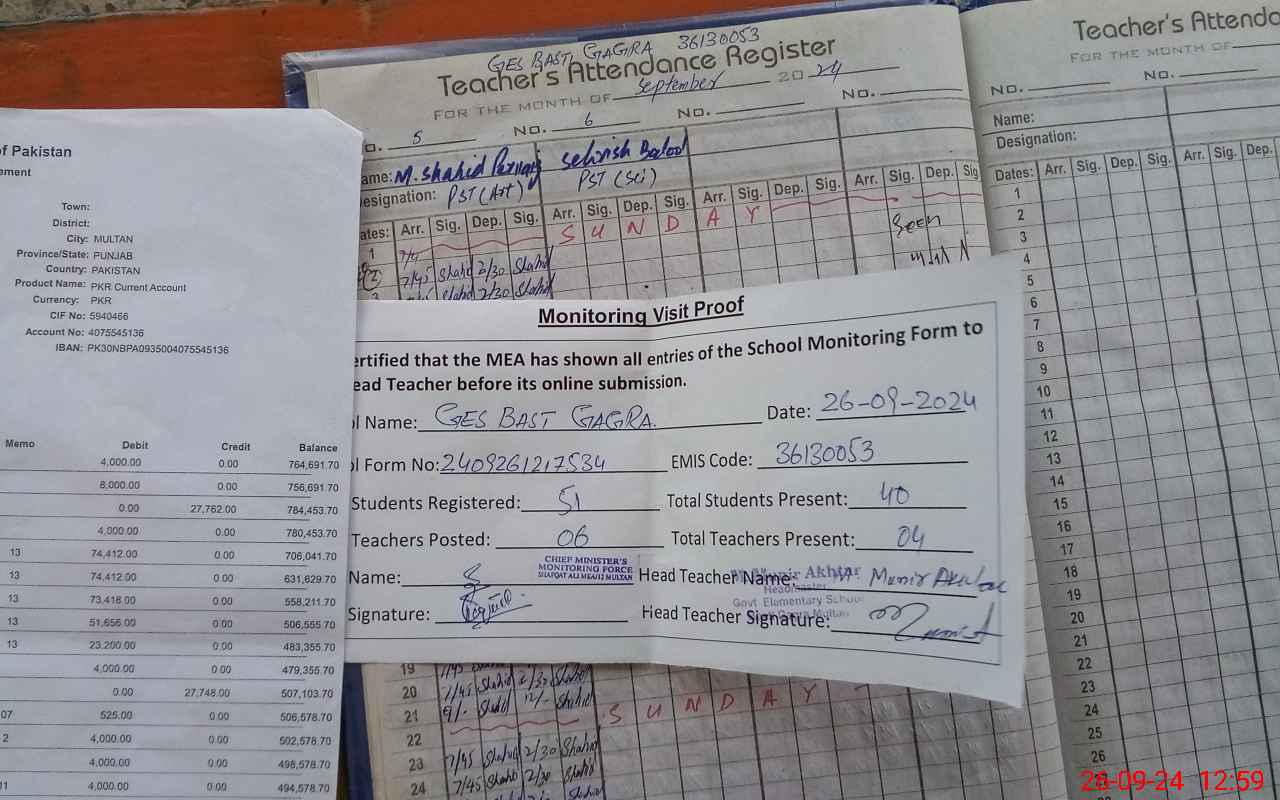 of Pakistan
ement
Town:
District:
City: MULTAN
Province/State: PUNJAB
Country: PAKISTAN
Product Name: PKR Current Account
Currency: PKR
CIF No: 5940466
Account No: 4075545136
IBAN: PK30NBPA0935004075545136
Memo Debit Credit Balance
4,000.00 0.00 764,691.70
8,000.00 0.00 756,691.70
0.00 27,762.00 784,453.70
4,000.00 0.00 780,453.70
13 74,412.00 0.00 706,041.70
13 74,412.00 0.00 631,629.70
13 73,418.00 0.00 558,211.70
13 51,656.00 0.00 506,555.70
13 23,200.00 0.00 483,355.70
4,000.00 0.00 479,355.70
0.00 27,748.00 507,103.70
07 525.00 0.00 506,578.70
2 4,000.00 0.00 502,578.70
4,000.00 0.00 498,578.70
11 4,000.00 0.00 494,578.70
GES BAST GAGRA 36130053
Teacher's Attendance Register
FOR THE MONTH OF September 20 24
o. 5 No. 6 No. No.
ame: M. Shahid Sehrish
esignation: PST (Art) PST (Sci)
ates: Arr. Sig. Dep. Sig. Arr. Sig. Dep. Sig. Arr. Sig. Dep. Sig. Arr. Sig. Dep. Sig
1 S U N D A Y
2 7/45 Shahid 2/30 Shahid Seen
Shahid 2/30 Shahid
Monitoring Visit Proof
ertified that the MEA has shown all entries of the School Monitoring Form to
ead Teacher before its online submission.
l Name: GES BAST GAGRA. Date: 26-09-2024
l Form No: 2409261217534 EMIS Code: 36130053
Students Registered: 51 Total Students Present: 40
Teachers Posted: 06 Total Teachers Present: 04
CHIEF MINISTER'S
MONITORING FORCE
SHAFQAT ALI MEA(12) MULTAN
Name: Head Teacher Name: Munir Akhtar
Munir Akhtar
Headmaster
Govt Elementary School
Gagra Multan
Signature: Head Teacher Signature:
19 7/45 Shahid 2/30 Shahid
20 7/45 Shahid 2/30 Shahid
21 Shahid 12/- Shahid
22 S U N D A Y
23 7/45 Shahid 2/30 Shahid
24 7/45 Shahid 2/30 Shahid
Teacher's Attenda
FOR THE MONTH OF
No. No.
Name:
Designation:
Dates: Arr. Sig. Dep. Sig. Arr. Sig. Dep.
1
2
3
4
5
6
7
8
9
10
11
12
13
14
15
16
17
18
19
20
21
22
23
24
25
26
26-09-24 12:59